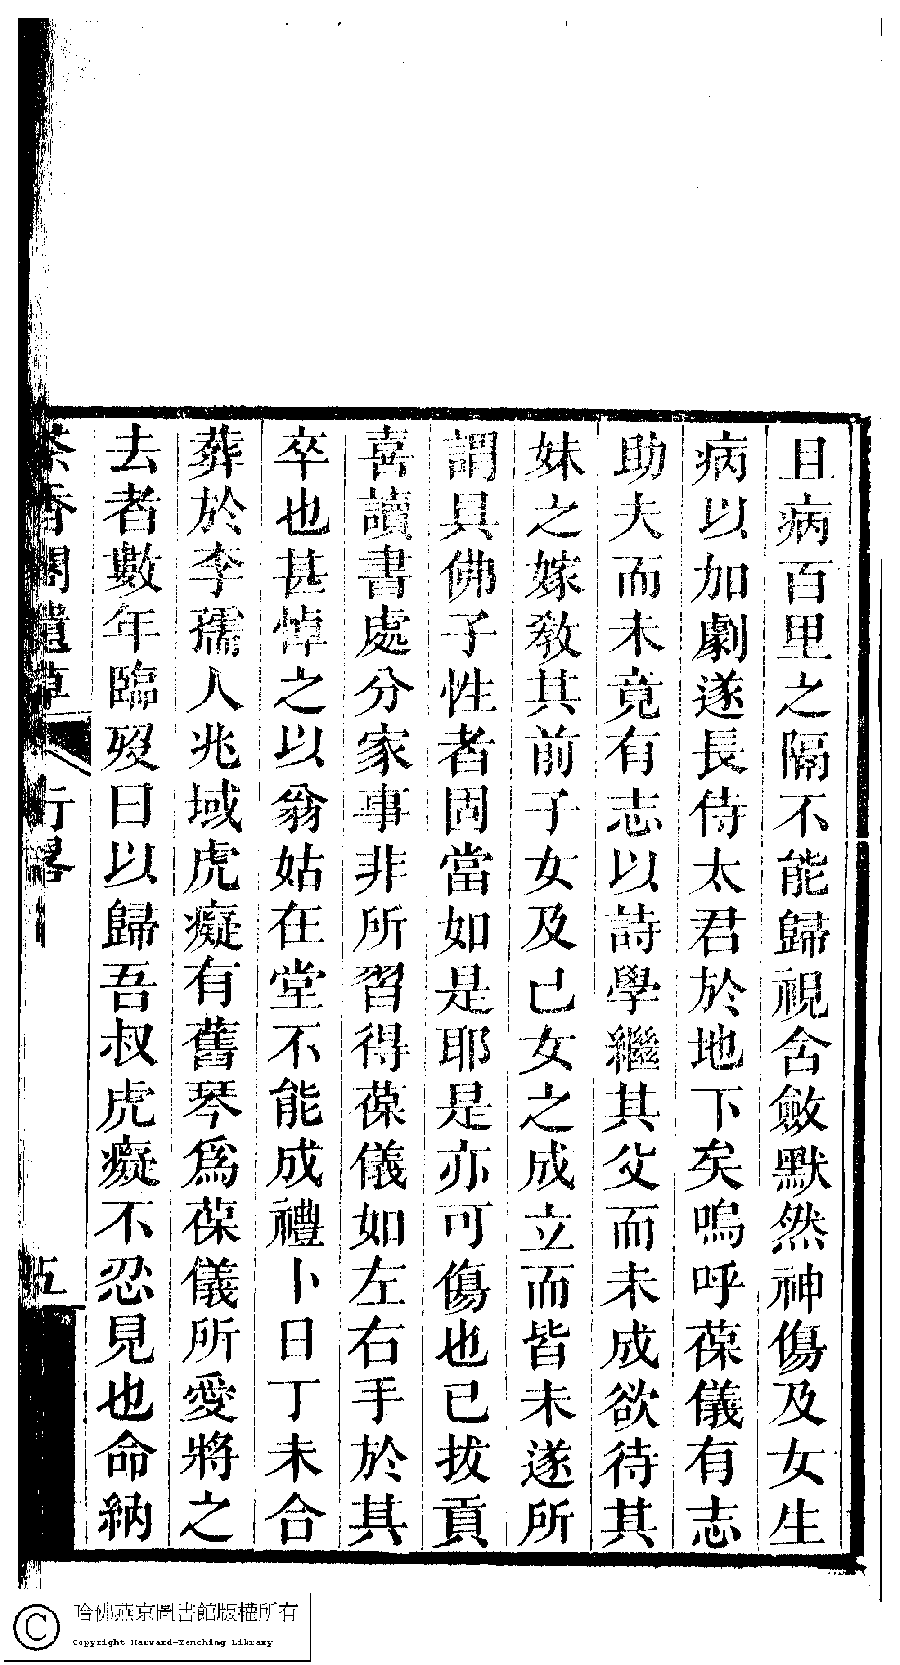 且病百里之隔不能歸視含斂默然神傷及女生
病以加劇遂長侍太君於地下矣嗚呼葆儀有志
助夫而未竟有志以詩學繼其父而未成欲待其
妹之嫁敎其前子女及已女之成立而皆未遂所
謂具佛子性者固當如是耶是亦可傷也已拔貢
喜讀書處分家事非所習得葆儀如左右手於其
卒也甚悼之以翁姑在堂不能成禮卜日丁未合
葬於李孺人兆域虎癡有舊琴爲葆儀所愛將之
去者數年臨歿曰以歸吾叔虎癡不忍見也命納
茶香閣遺草
行畧
五
哈佛燕京圖書館版權所有
Copyright Harvard-Yenching Library